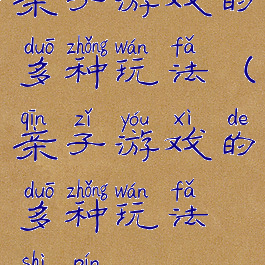 亲子游戏的
duō zhǒng wán fǎ
多种玩法（
qīn zǐ yóu xì de
亲子游戏的
duō zhǒng wán fǎ
多种玩法
shì pín